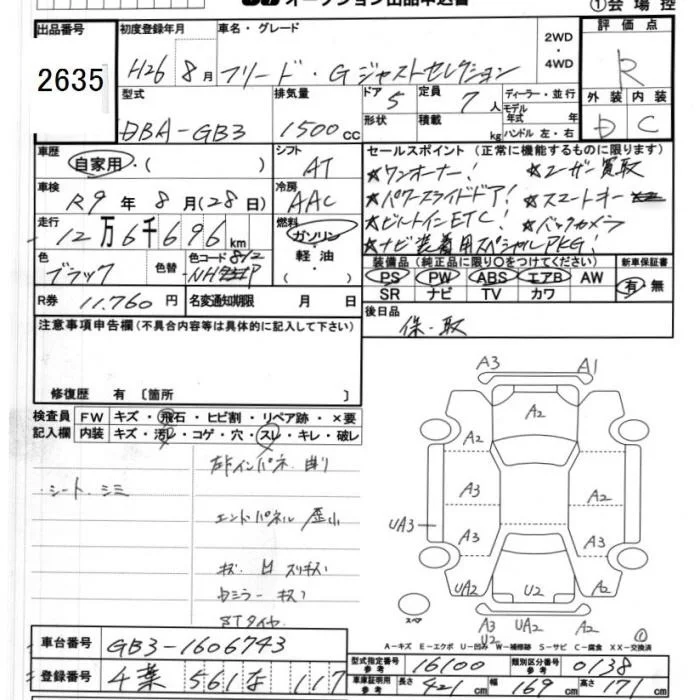 オークション出品申込書
①会場控
出品番号
2635
初度登録年月
H26 8月
車名・グレード
フリード・Gジャストセレクション
2WD
・
4WD
評価点
R
外装 内装
D C
型式
DBA-GB3
排気量
1500cc
ドア
5
定員
7人
形状
積載
kg
ディーラー・並行
モデル
年式 年
ハンドル 左・右
車歴
自家用・( )
シフト
AT
車検
R9年 8月(28日)
冷房
AAC
走行
12万6千696km
燃料
ガソリン・
軽油・
( )
色
ブラック
色替
色コード 812
R券 11.760円
名変通知期限 月 日
セールスポイント(正常に機能するものに限ります)
☆ワンオーナー! ☆ユーザー買取
☆パワースライドドア! ☆スマートキー
☆ビルトインETC! ☆バックカメラ
☆ナビ装着用スペシャルPKG!
装備品(純正品に限り○をつけてください)
PS PW ABS エアB AW
SR ナビ TV カワ
新車保証書
有・無
後日品
保・取
注意事項申告欄(不具合内容等は具体的に記入して下さい)
修復歴 有 〔箇所 〕
検査員
記入欄
FW キズ・飛石・ヒビ割・リペア跡・×要
内装 キズ・汚レ・コゲ・穴・スレ・キレ・破レ
・シート、シミ
インパネ 曲り
エンドパネル 歪小
キズ 凹 スリキズ
ミラー キズ
STタイヤ
A3 A1
A2
A2
A3 A2
UA3
A3 A3
UA2 U2 A2
A3 UA2 A2
U2
スペア
①
A-キズ E-エクボ U-凹み W-補修跡 S-サビ C-腐食 XX-交換済
車台番号
GB3-1606743
登録番号
千葉 561 な 117
型式指定番号
参考
16100
類別区分番号
参考
0138
車庫証明用
参考
長さ 421cm 幅 169cm 高さ 171cm